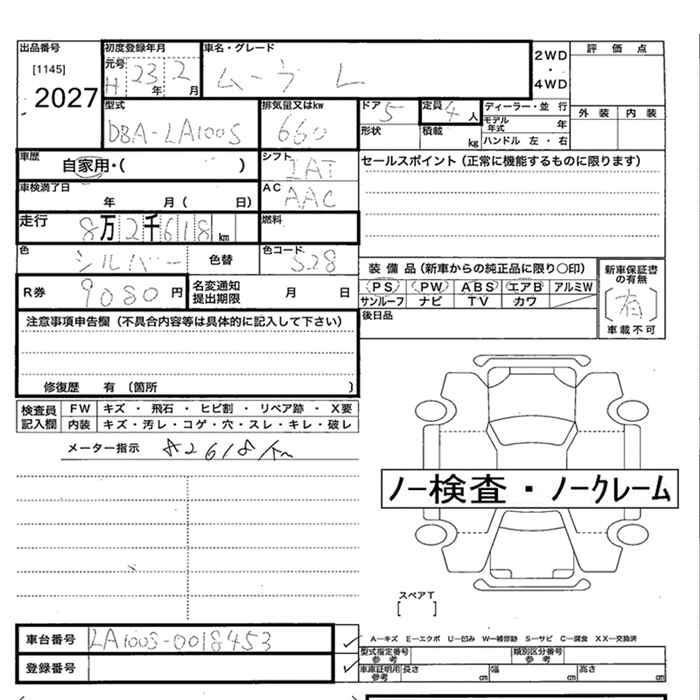 出品番号 初度登録年月 車名・グレード 2WD ・ 4WD 評価点
[1145] 元号 H 23年 2月 ムーヴ L
2027
外装 内装
型式 DBA-LA100S 排気量又はkw 660 ドア 5 定員 4人 ディーラー・並行
形状 積載 kg モデル年式 年
ハンドル 左・右
車歴 自家用・( ) シフト IAT セールスポイント(正常に機能するものに限ります)
車検満了日 年 月( 日) AC AAC
走行 8万2千618km 燃料
色 シルバー 色替 色コード S28
装備品(新車からの純正品に限り○印) 新車保証書の有無
R券 9080円 名変通知提出期限 月 日 PS PW ABS エアB アルミW (有)
サンルーフ ナビ TV カワ 車載不可
注意事項申告欄(不具合内容等は具体的に記入して下さい) 後日品
修復歴 有(箇所 )
検査員記入欄 FW キズ・飛石・ヒビ割・リペア跡・X要
内装 キズ・汚レ・コゲ・穴・スレ・キレ・破レ
メーター指示 82618km
ノー検査・ノークレーム
スペアT
[ ]
車台番号 LA100S-0018453 A―キズ E―エクボ U―凹み W―補修跡 S―サビ C―腐食 XX―交換済
型式指定番号 参考 類別区分番号 参考
登録番号 車庫証明用参考 長さ cm 幅 cm 高さ cm